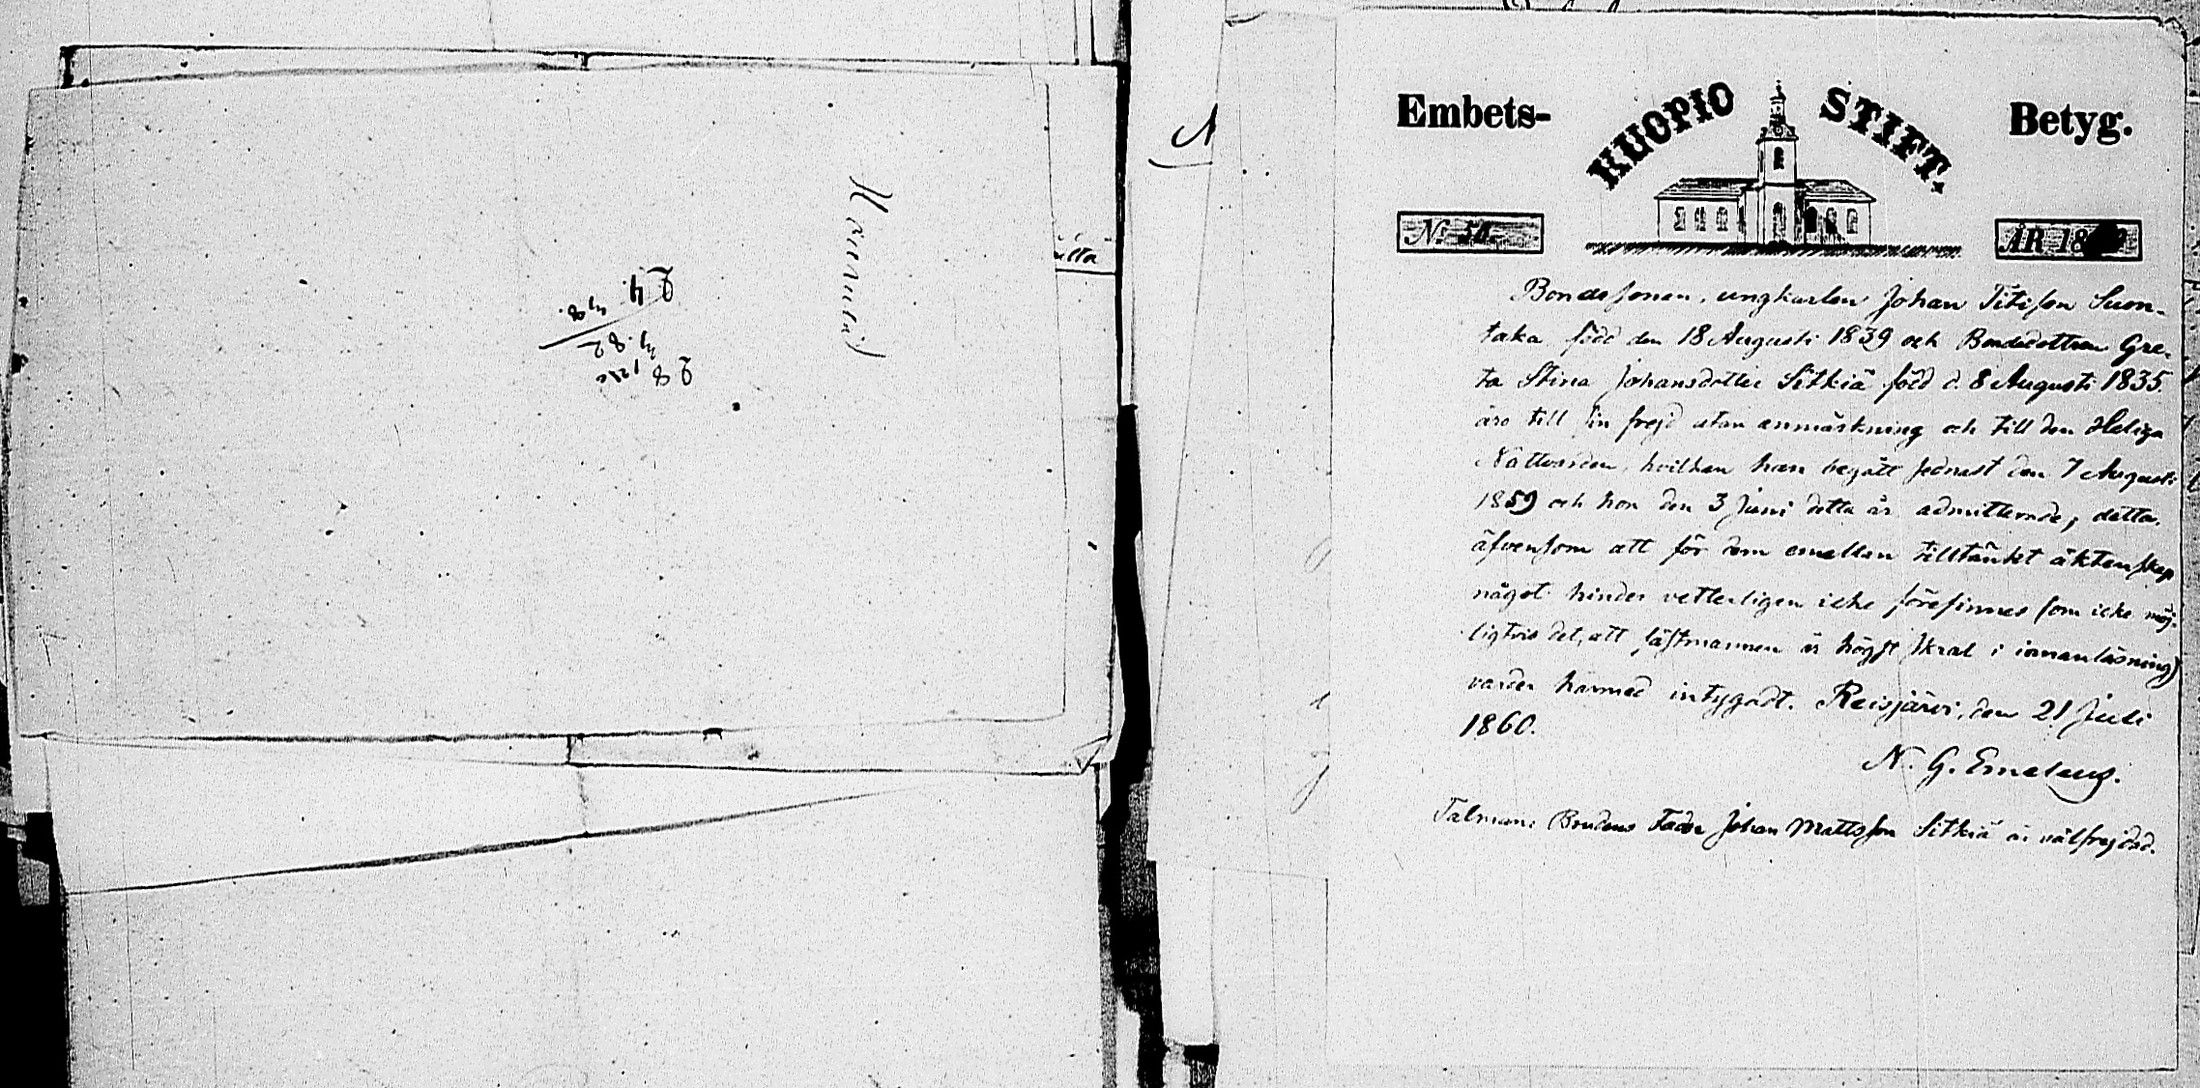 Embets- KUOPIO STIFT. Betyg.
N: 50. ÅR 18
Bondesonen, ungkarlen Johan Titisson Suon-
taka född den 18 Augusti 1839 och Bondedottren Gre-
ta Stina Johansdotter Sitkiä född d. 8 Augusti 1835
äro till sin frejd utan anmärkning och till den Heliga
Nattvarden, hvilken han begått sednast den 7 Augusti
1859 och hon den 3 Juni detta år admitterade, detta
äfvensom att för dem emellan tilltänkt äktenskap
något hinder vetterligen icke förefinnes (om icke möj-
ligtvis det, att fästmannen är högst skral i innanläsning)
varder härmed intygadt. Reisjärvi, den 21 Juli
1860.
N. G. Emeleus.
Talman: Brudens Fader Johan Mattsson Sitkiä är välfrejdad.